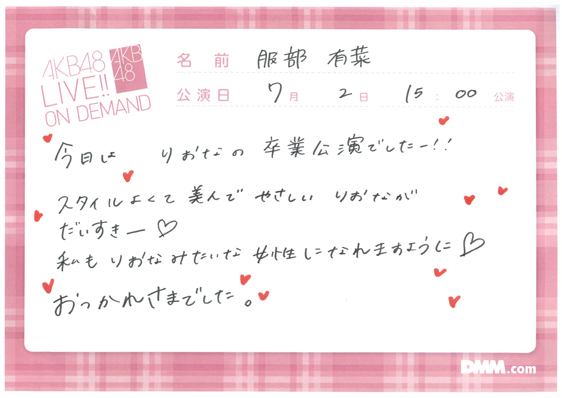 AKB48
LIVE!!
ON DEMAND
AKB
48
名前 服部 有菜
公演日 7月 2日 15:00 公演
今日は りおなの 卒業公演でしたー!!
スタイルよくて 美人で やさしい りおなが
だいすきー♡
私も りおなみたいな 女性になれますように♡
おつかれさまでした。
DMM.com